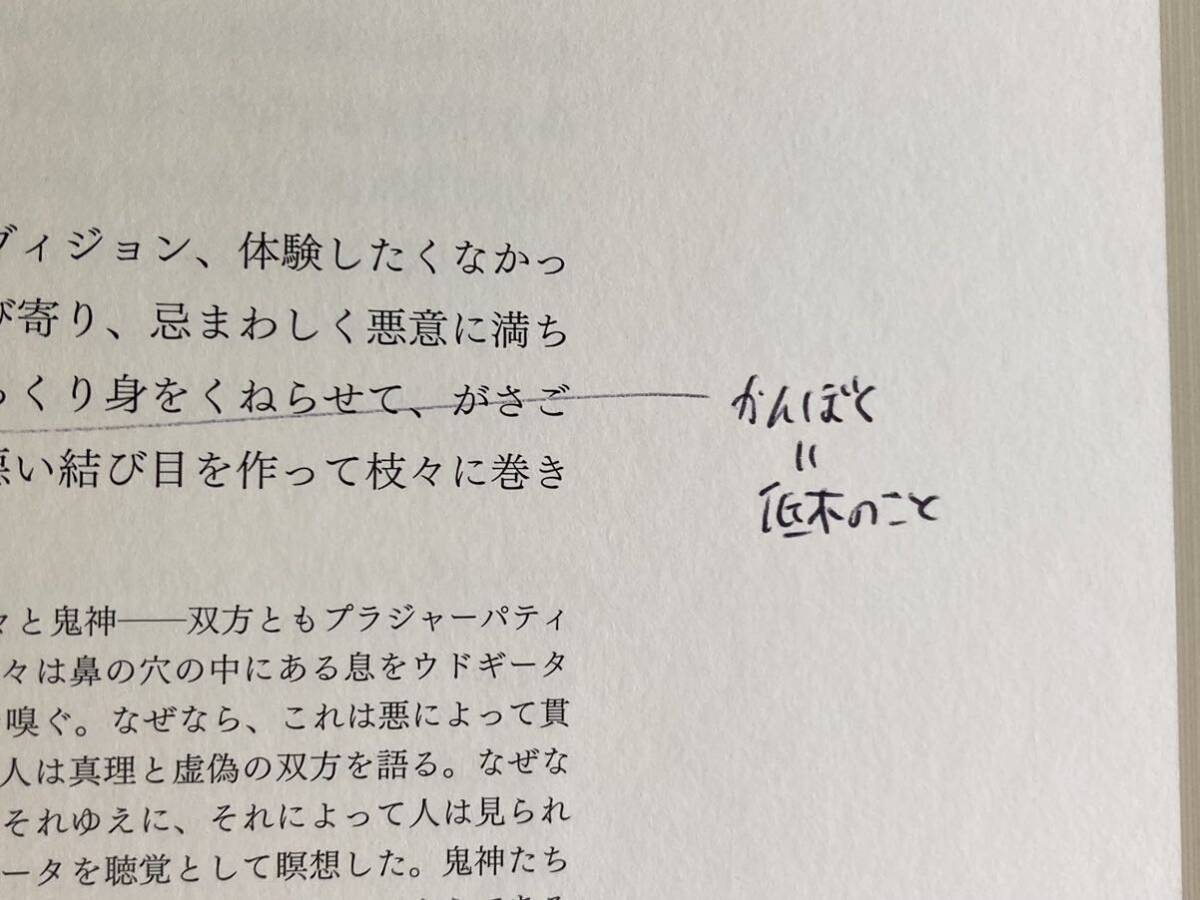 ヴィジョン、体験したくなかっ
び寄り、忌まわしく悪意に満ち
っくり身をくねらせて、がさご
悪い結び目を作って枝々に巻き
かんぼく
=
低木のこと
々と鬼神――双方ともプラジャーパティ
々は鼻の穴の中にある息をウドギータ
嗅ぐ。なぜなら、これは悪によって貫
人は真理と虚偽の双方を語る。なぜな
それゆえに、それによって人は見られ
ータを聴覚として瞑想した。鬼神たち